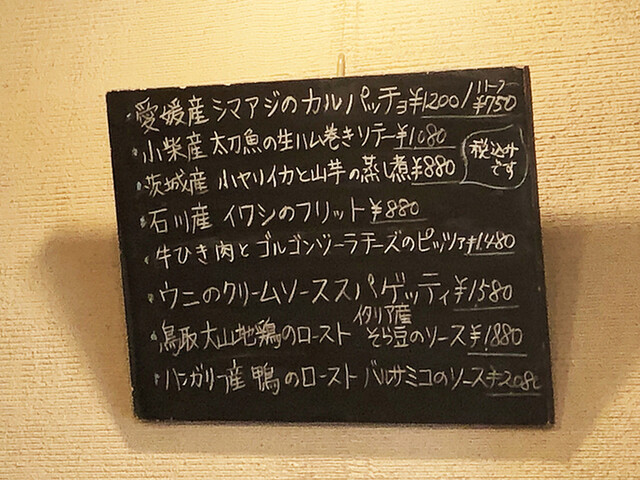 ・愛媛産 シマアジのカルパッチョ ¥1200/ハーフ¥750
・小柴産 太刀魚の生ハム巻きソテー ¥1080
税込みです
・茨城産 小ヤリイカと山芋の蒸し煮 ¥880
・石川産 イワシのフリット ¥880
・牛ひき肉とゴルゴンゾーラチーズのピッツァ ¥1480
・ウニのクリームソーススパゲッティ ¥1580
・鳥取大山地鶏のロースト イタリア産そら豆のソース ¥1880
・ハンガリー産 鴨のロースト バルサミコのソース ¥2080